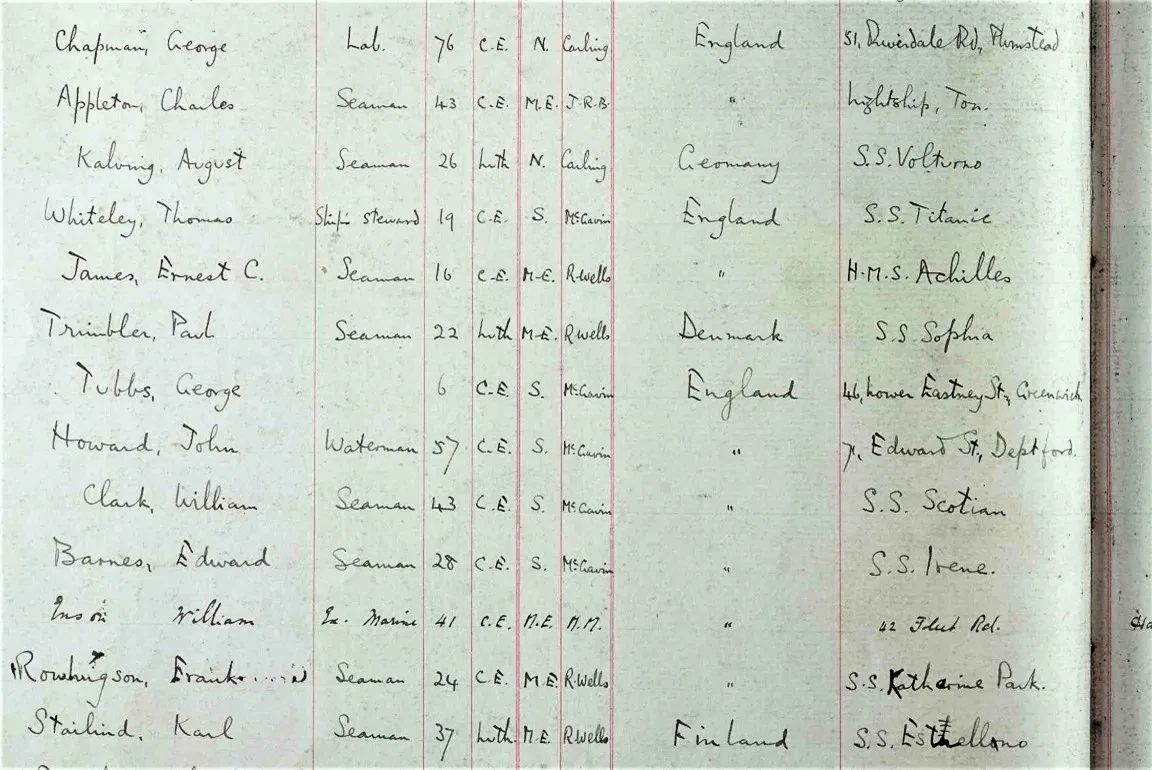 Chapman, George Lab. 76 C.E. N. Carling England 51, Riverdale Rd, Plumstead
Appleton, Charles Seaman 43 C.E. M.E. J.R.B. " Lightship, Ton.
Kalving, August Seaman 26 Luth N. Carling Geomany S.S. Volturno
Whiteley, Thomas Ship's steward 19 C.E. S. McGavin England S.S. Titanic
James, Ernest C. Seaman 16 C.E. M.E. R.Wells " H.M.S. Achilles
Trimbler, Paul Seaman 22 Luth M.E. R.Wells Denmark S.S. Sophia
Tubbs, George 6 C.E. S. McGavin England 46, Lower Eastney St., Greenwich
Howard, John Waterman 57 C.E. S. McGavin " 71, Edward St., Deptford.
Clark, William Seaman 43 C.E. S. McGavin " S.S. Scotian
Barnes, Edward Seaman 28 C.E. S. McGavin " S.S. Irene.
William Ex. Marine 41 C.E. M.E. M.M. " 42 Rd.
Frank Seaman 24 C.E. M.E. R.Wells " S.S. Katherine Park.
Stailind, Karl Seaman 37 Luth. M.E. R.Wells Finland S.S.